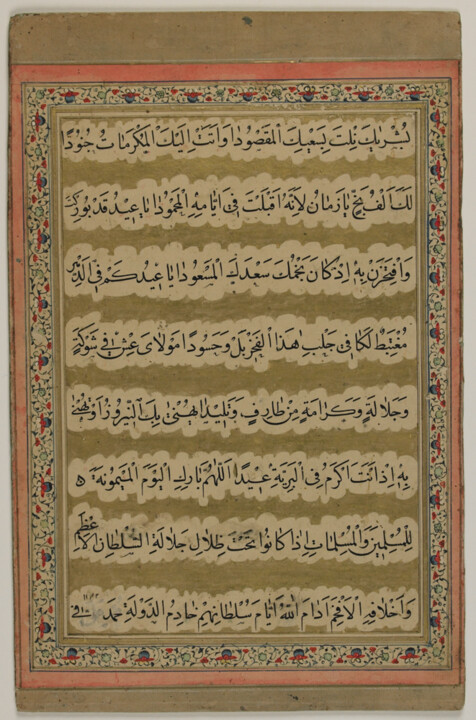 بشريك نلت بسعيك المقصودا واتت اليك المكرمات جنودا
لك الف بخ يا زمان لانه اقبلت في ايامه المحمودا يا عيد قد بورك
وافتخرن به اذ كان نجمك سعدك المسعودا يا عيد كم في الدهر
مغتبط لكا في جلب هذا الفخر بل وحسودا مولاي عش في شوكة
وجلالة وكرامة من طارف وتليد اهنئ بك النيروز او
به اذ انت اكرم في البرية عيدا اللهم بارك اليوم الميمونة
للمسلمين والمسلمات اذ كانوا تحت ظلال جلالة السلطان الاعظم
واخلافه الافخم ادام الله ايام سلطانهم خادم الدولة محمد